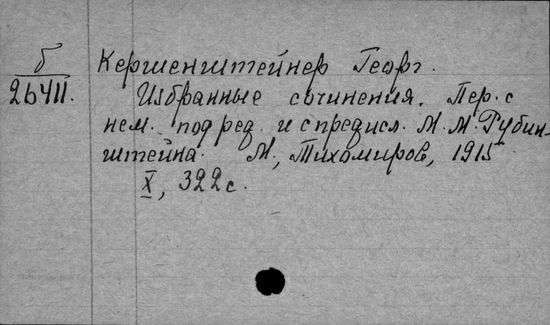 б Кершенштейнер Георг.
26411. Избранные сочинения. Пер. с
нем. под ред. и с предисл. М. М. Рубин-
штейна. М., Тихомиров, 1915
X, 322 с.